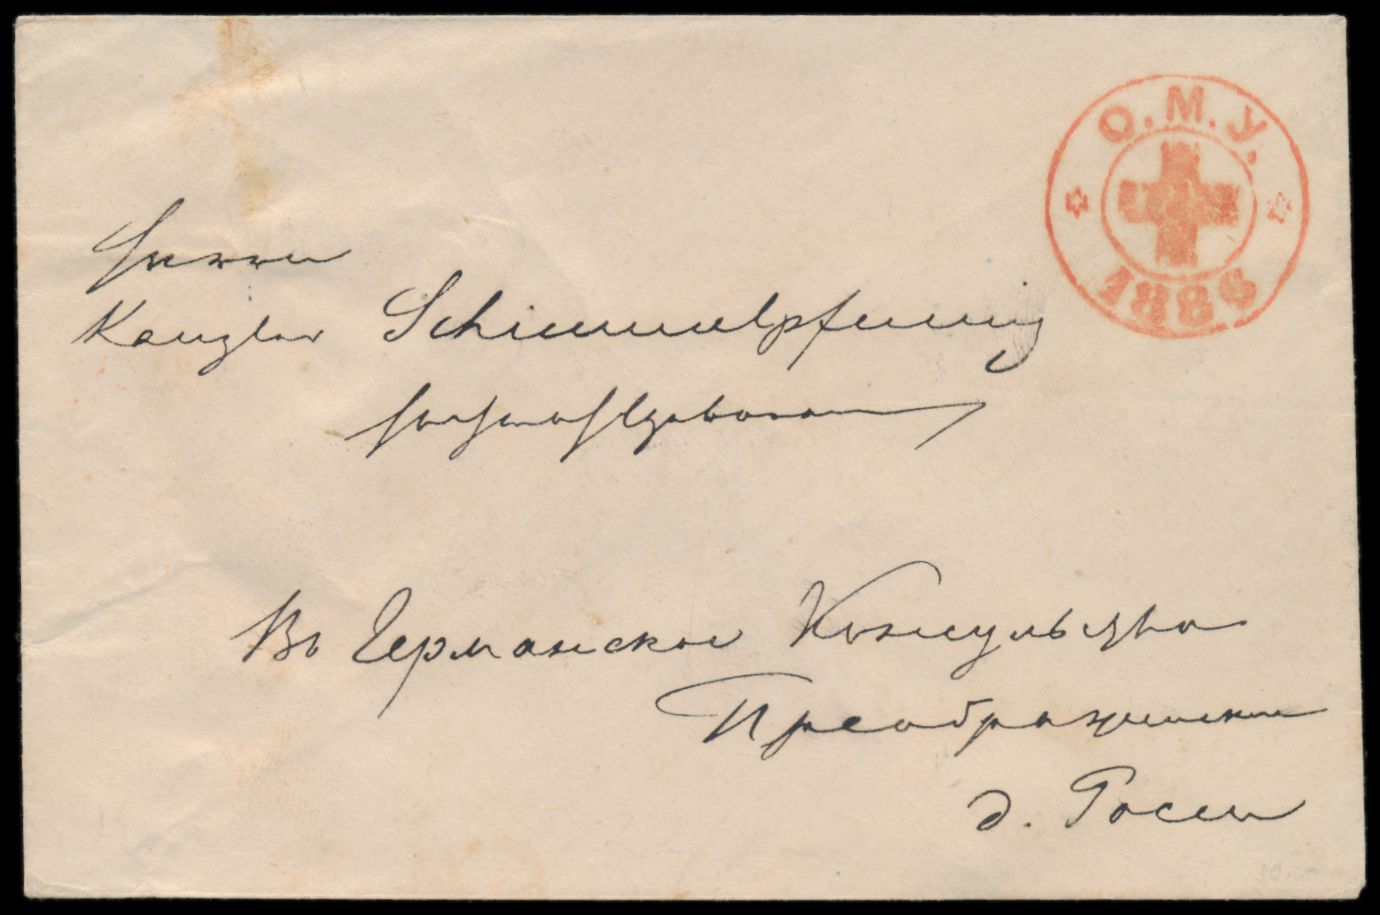 О.М.У.
1886
Herrn
Kanzler Schimmelpfennig
Hochwohlgeboren
Въ Германское Консульство
Преображенская
д. Росси